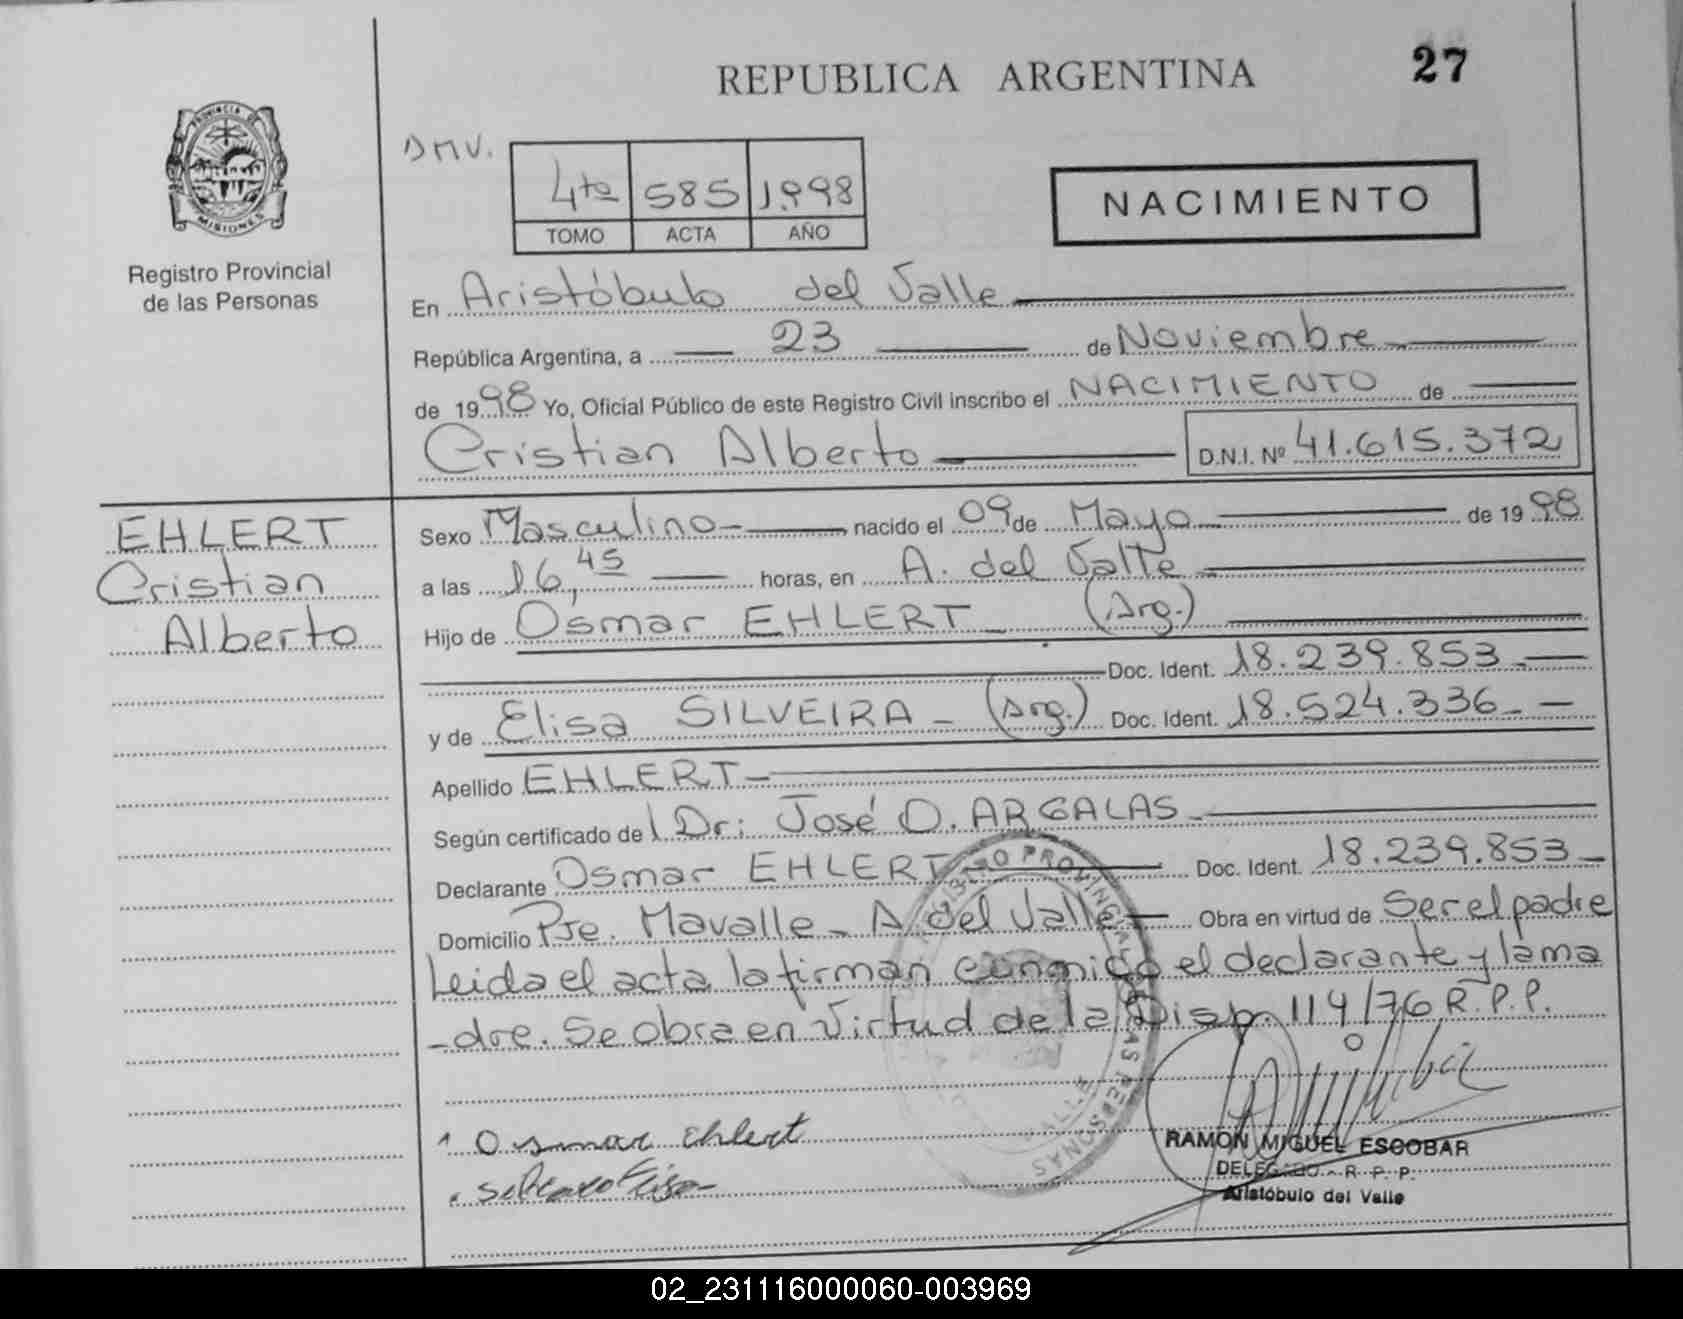 REPUBLICA ARGENTINA
27
PROVINCIA DE
MISIONES
Registro Provincial
de las Personas
DMV.
4ta 585 1998
TOMO ACTA AÑO
NACIMIENTO
En Aristóbulo del Valle
República Argentina, a 23 de Noviembre
de 1998 Yo, Oficial Público de este Registro Civil inscribo el NACIMIENTO de
Cristian Alberto D.N.I. Nº 41.615.372
EHLERT
Cristian
Alberto
Sexo Masculino nacido el 09 de Mayo de 1998
a las 16,45 horas, en A. del Valle
Hijo de Osmar EHLERT (Arg.)
Doc. Ident. 18.239.853
y de Elisa SILVEIRA (Arg.) Doc. Ident. 18.524.336
Apellido EHLERT
Según certificado de Dr: José O. ARGALAS
Declarante Osmar EHLERT Doc. Ident. 18.239.853
Domicilio Pje. Mavalle - A. del Valle Obra en virtud de Ser el padre
Leida el acta la firman conmigo el declarante y la ma
-dre. Se obra en virtud de la Disp. 114/76 R.P.P.
Osmar Ehlert
RAMON MIGUEL ESCOBAR
DELEGADO - R. P. P.
Aristóbulo del Valle
02_231116000060-003969